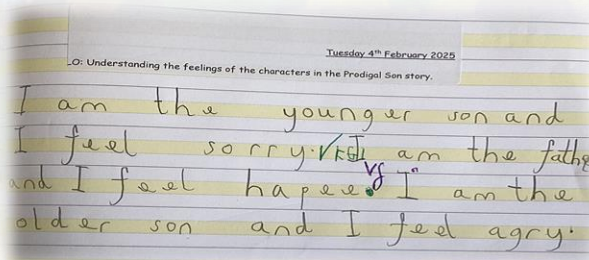 Tuesday 4th February 2025
LO: Understanding the feelings of the characters in the Prodigal Son story.
I am the younger son and
I feel sorry. I am the fathe
and I feel hapee. I am the
older son and I feel agry.